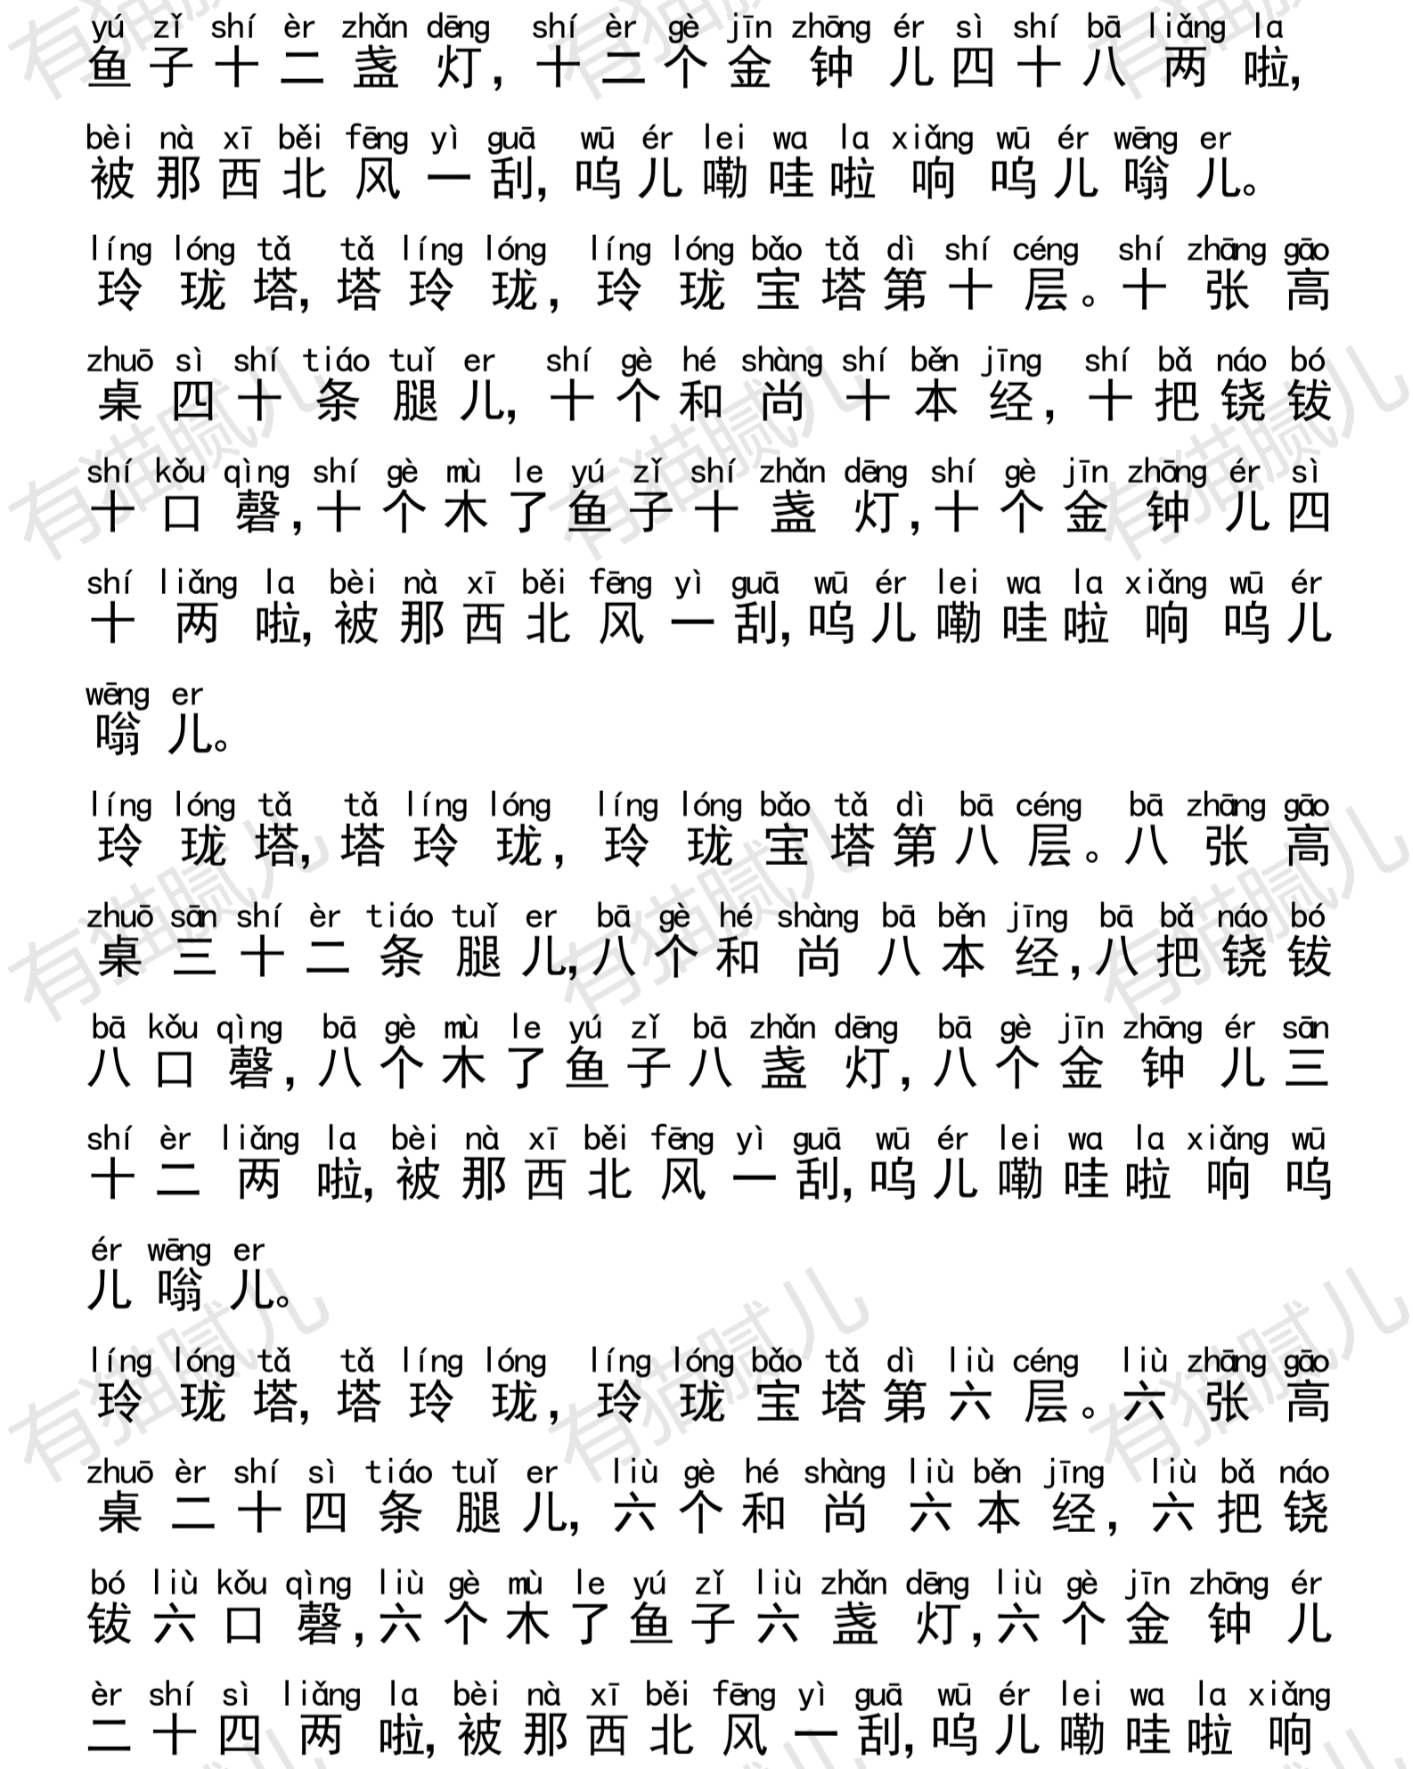 yú zǐ shí èr zhǎn dēng shí èr gè jīn zhōng ér sì shí bā liǎng la
鱼子十二盏灯，十二个金钟儿四十八两啦，
bèi nà xī běi fēng yì guā wū ér lei wa la xiǎng wū ér wēng er
被那西北风一刮，呜儿嘞哇啦响呜儿嗡儿。
líng lóng tǎ tǎ líng lóng líng lóng bǎo tǎ dì shí céng shí zhāng gāo
玲珑塔，塔玲珑，玲珑宝塔第十层。十张高
zhuō sì shí tiáo tuǐ er shí gè hé shàng shí běn jīng shí bǎ náo bó
桌四十条腿儿，十个和尚十本经，十把铙钹
shí kǒu qìng shí gè mù le yú zǐ shí zhǎn dēng shí gè jīn zhōng ér sì
十口磬，十个木了鱼子十盏灯，十个金钟儿四
shí liǎng la bèi nà xī běi fēng yì guā wū ér lei wa la xiǎng wū ér
十两啦，被那西北风一刮，呜儿嘞哇啦响呜儿
wēng er
嗡儿。
líng lóng tǎ tǎ líng lóng líng lóng bǎo tǎ dì bā céng bā zhāng gāo
玲珑塔，塔玲珑，玲珑宝塔第八层。八张高
zhuō sān shí èr tiáo tuǐ er bā gè hé shàng bā běn jīng bā bǎ náo bó
桌三十二条腿儿，八个和尚八本经，八把铙钹
bā kǒu qìng bā gè mù le yú zǐ bā zhǎn dēng bā gè jīn zhōng ér sān
八口磬，八个木了鱼子八盏灯，八个金钟儿三
shí èr liǎng la bèi nà xī běi fēng yì guā wū ér lei wa la xiǎng wū
十二两啦，被那西北风一刮，呜儿嘞哇啦响呜
ér wēng er
儿嗡儿。
líng lóng tǎ tǎ líng lóng líng lóng bǎo tǎ dì liù céng liù zhāng gāo
玲珑塔，塔玲珑，玲珑宝塔第六层。六张高
zhuō èr shí sì tiáo tuǐ er liù gè hé shàng liù běn jīng liù bǎ náo
桌二十四条腿儿，六个和尚六本经，六把铙
bó liù kǒu qìng liù gè mù le yú zǐ liù zhǎn dēng liù gè jīn zhōng ér
钹六口磬，六个木了鱼子六盏灯，六个金钟儿
èr shí sì liǎng la bèi nà xī běi fēng yì guā wū ér lei wa la xiǎng
二十四两啦，被那西北风一刮，呜儿嘞哇啦响
有猫腻儿
有猫腻儿
有猫腻儿
有猫腻儿
有猫腻儿
有猫腻儿
有猫腻儿
有猫腻儿
有猫腻儿